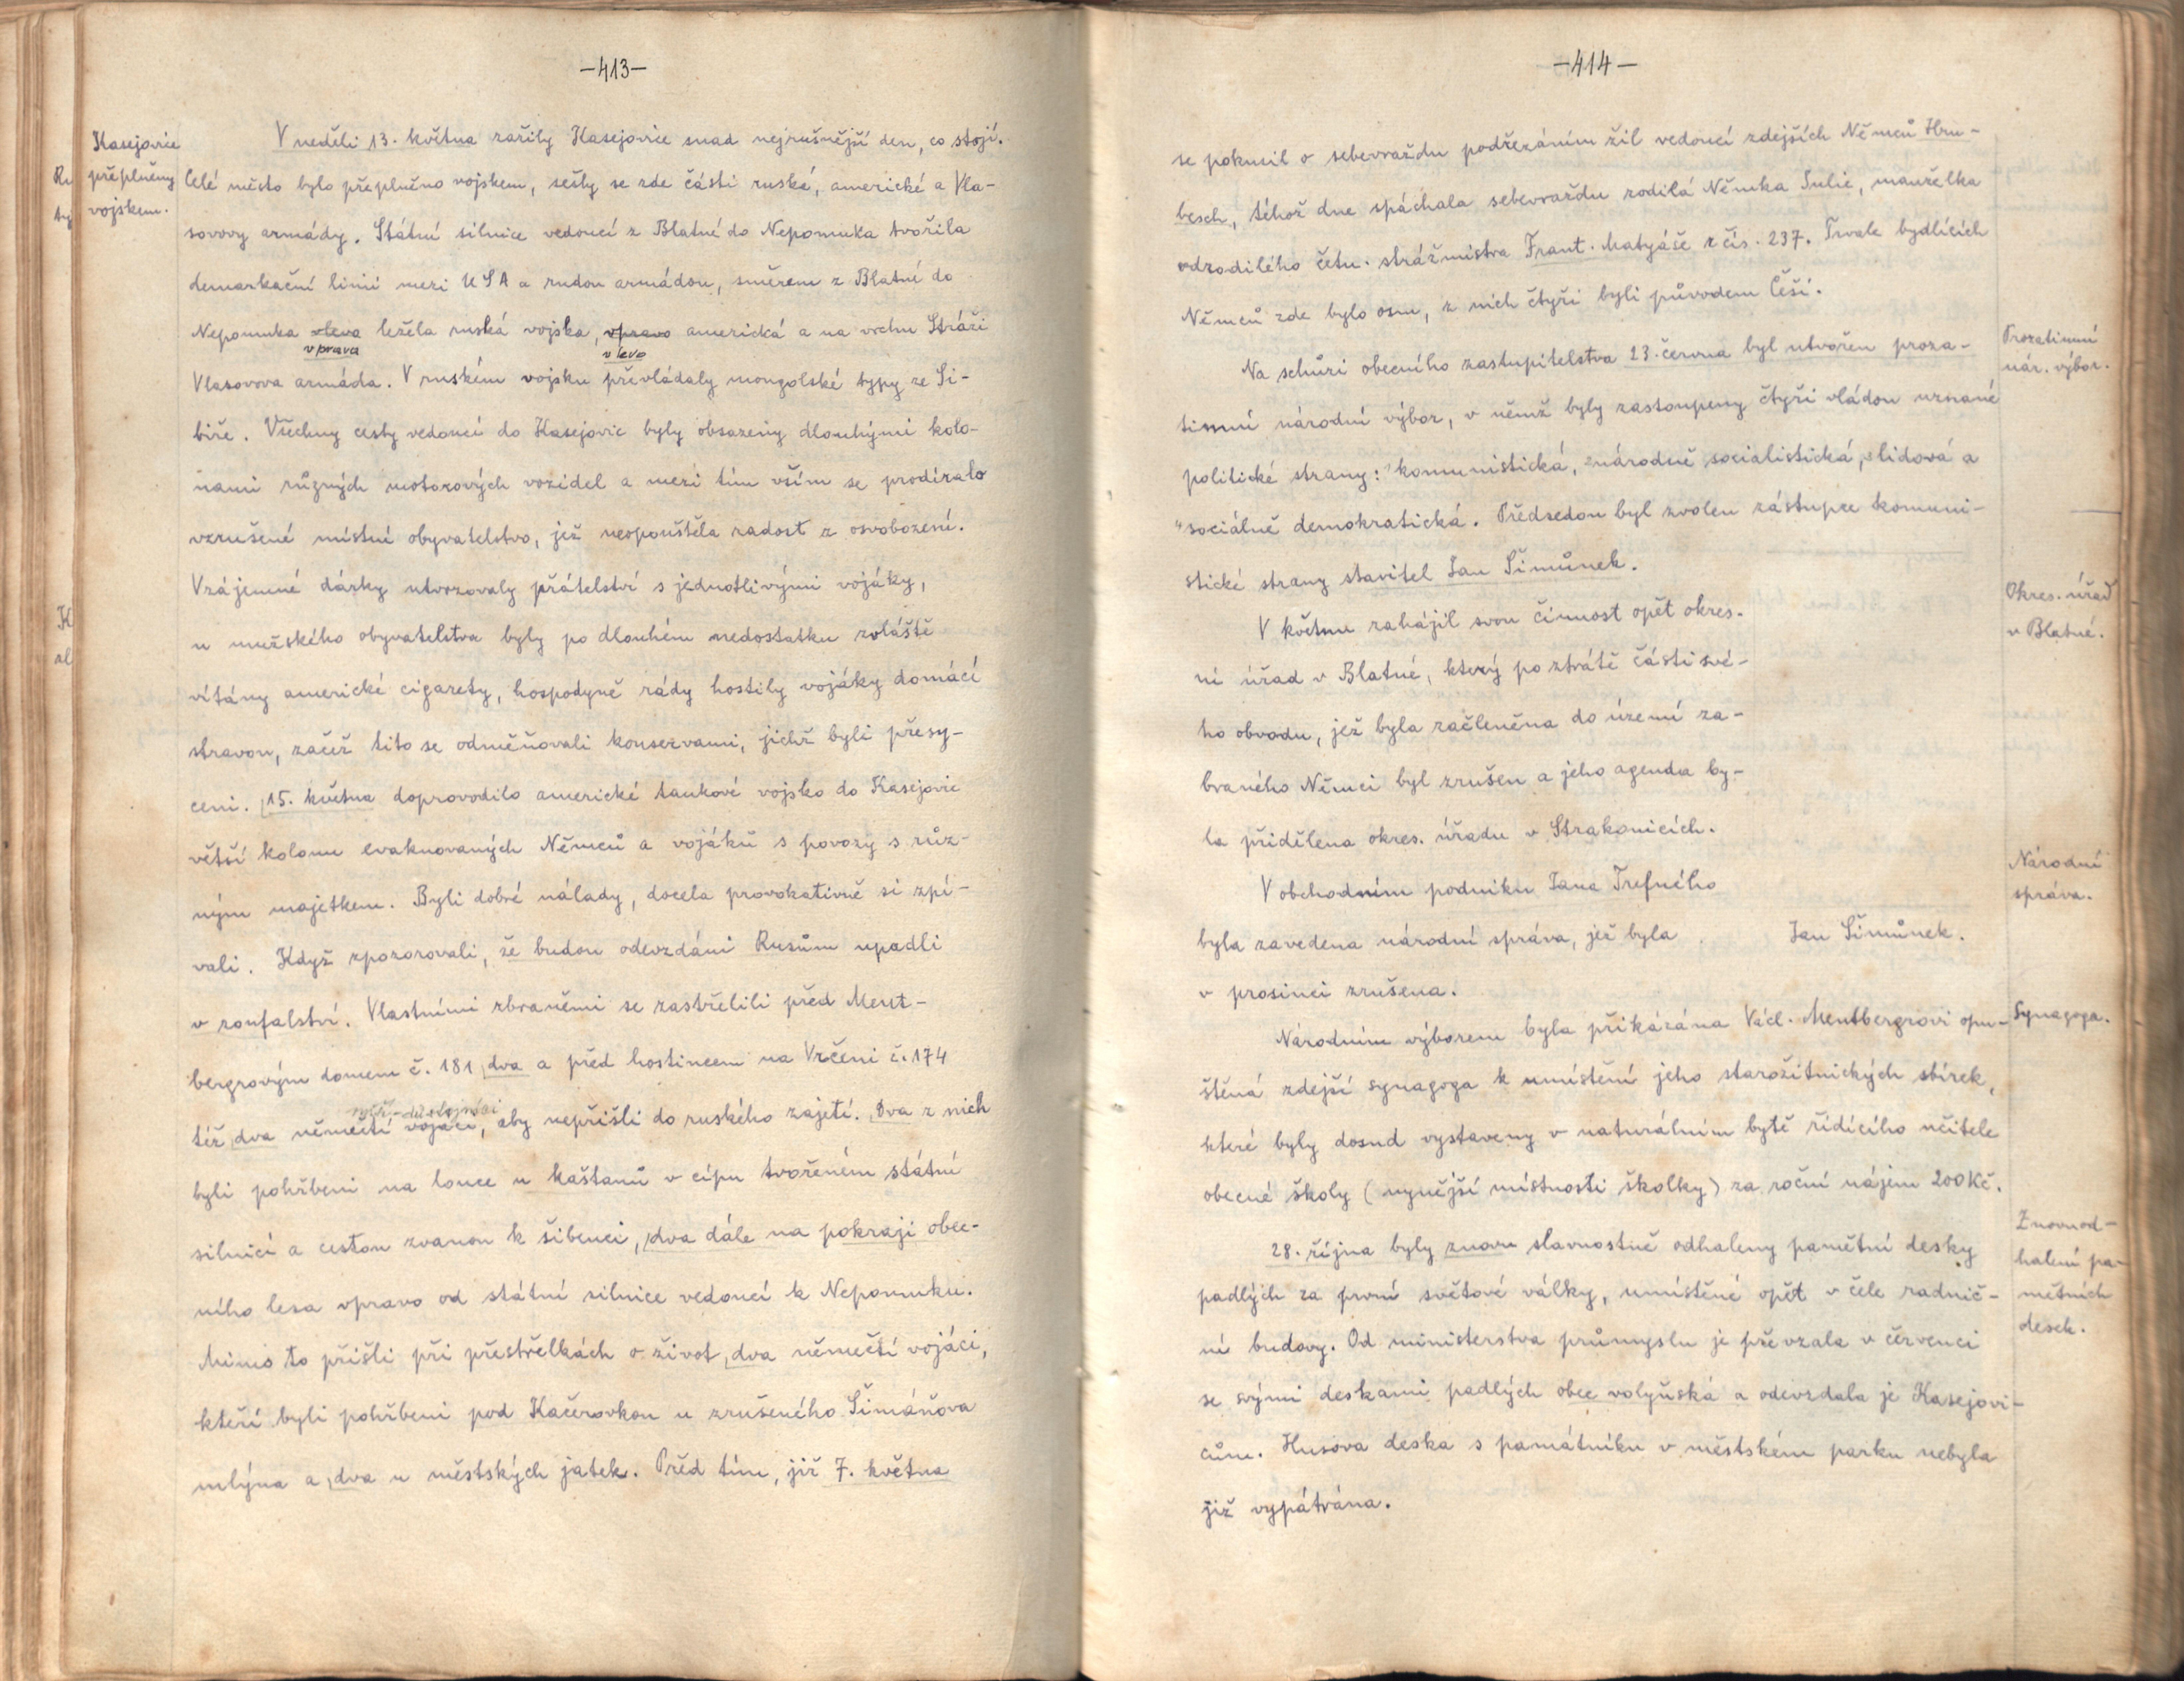 -413-
Kasejovice
přeplněny
vojskem.
V neděli 13. května zažily Kasejovice snad nejrušnější den, co stojí.
Celé město bylo přeplněno vojskem, sešly se zde části ruské, americké a Vla-
sovovy armády. Státní silnice vedoucí z Blatné do Nepomuka tvořila
demarkační linii mezi USA a rudou armádou, směrem z Blatné do
Nepomuka vleva ležela ruská vojska, vpravo americká a na vrchu Stráži
vpravo vlevo
Vlasovova armáda. V ruském vojsku převládaly mongolské typy ze Si-
biře. Všechny cesty vedoucí do Kasejovic byly obsazeny dlouhými kolo-
nami různých motorových vozidel a mezi tím vším se prodíralo
vzrušené místní obyvatelstvo, jež neopouštěla radost z osvobození.
Vzájemné dárky utvrzovaly přátelství s jednotlivými vojáky,
u mužského obyvatelstva byly po dlouhém nedostatku zvláště
vítány americké cigarety, hospodyně rády hostily vojáky domácí
stravou, začež tito se odměňovali konservami, jichž byli přesy-
ceni. 15. května doprovodilo americké tankové vojsko do Kasejovic
větší kolonu evakuovaných Němců a vojáků s povozy s růz-
ným majetkem. Byli dobré nálady, docela provokativně si zpí-
vali. Když zpozorovali, že budou odevzdáni Rusům upadli
v zoufalství. Vlastními zbraněmi se zastřelili před Ment-
bergrovým domem č. 181 dva a před hostincem na Vrčeni č. 174
vyšší důstojníci
též dva němečtí vojáci, aby nepřišli do ruského zajetí. Dva z nich
byli pohřbeni na louce u kaštanů v cípu tvořeném státní
silnicí a cestou zvanou k šibenci, dva dále na pokraji obec-
ního lesa vpravo od státní silnice vedoucí k Nepomuku.
Mimo to přišli při přestřelkách o život dva němečtí vojáci,
kteří byli pohřbeni pod Kačerovkou u zrušeného Šimáňova
mlýna a dva u městských jatek. Před tím, již 7. května
-414-
se pokusil o sebevraždu podřezáním žil vedoucí zdejších Němců Hru-
besch, téhož dne spáchala sebevraždu rodilá Němka Julie, manželka
odrodilého četn. strážmistra Frant. Matyáše z čís. 237. Trvale bydlících
Němců zde bylo osm, z nich čtyři byli původem Češi.
Prozatimní
nár. výbor.
Na schůzi obecního zastupitelstva 23. června byl utvořen proza-
timní národní výbor, v němž byly zastoupeny čtyři vládou uznané
politické strany: 1komunistická, 2národně socialistická, 3lidová a
4sociálně demokratická. Předsedou byl zvolen zástupce komuni-
stické strany stavitel Jan Šimůnek.
Okres. úřad
v Blatné.
V květnu zahájil svou činnost opět okres-
ní úřad v Blatné, který po ztrátě části své-
ho obvodu, jež byla začleněna do území za-
braného Němci byl zrušen a jeho agenda by-
la přidělena okres. úřadu v Strakonicích.
Národní
správa.
V obchodním podniku Jana Trefného
byla zavedena národní správa, jež byla
v prosinci zrušena.
Jan Šimůnek.
Synagoga.
Národním výborem byla přikázána Václ. Mentbergrovi opu-
štěná zdejší synagoga k umístění jeho starožitnických sbírek,
které byly dosud vystaveny v naturálním bytě řídícího učitele
obecné školy (nynější místnosti školky) za roční nájem 200 Kč.
Znovuod-
halení pa-
mětních
desek.
28. října byly znovu slavnostně odhaleny pamětní desky
padlých za první světové války, umístěné opět v čele radnič-
ní budovy. Od ministerstva průmyslu je převzala v červenci
se svými deskami padlých obce volyňská a odevzdala je Kasejovi-
cům. Husova deska s památníku v městském parku nebyla
již vypátrána.